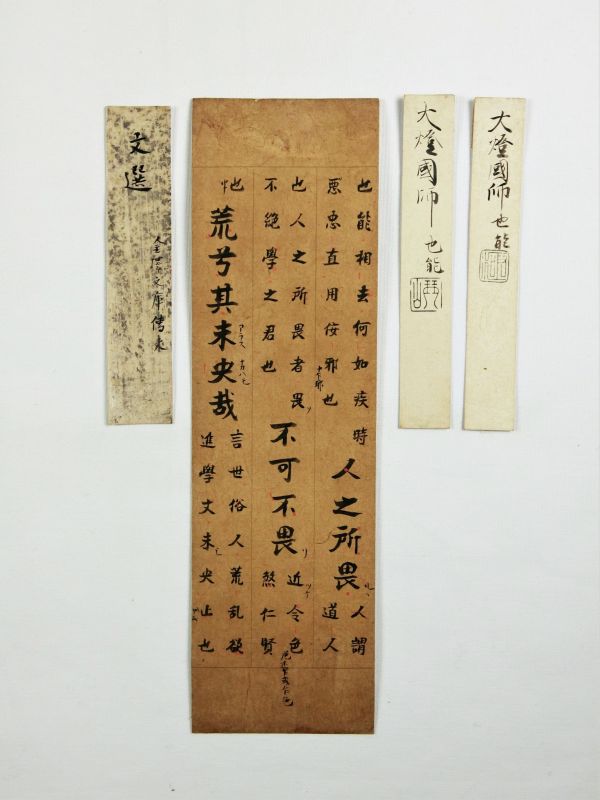 大燈國師 也能
大燈國師 也能
也能相去何如疾時
惡忠直用佞邪也
人之所畏
人謂
道人
也人之所畏者畏
不絕學之君也
不可不畏
近令色
煞仁賢
也
荒兮其未央哉
言世俗人荒乱欲
進學文未央止也
文選
文庫傳来